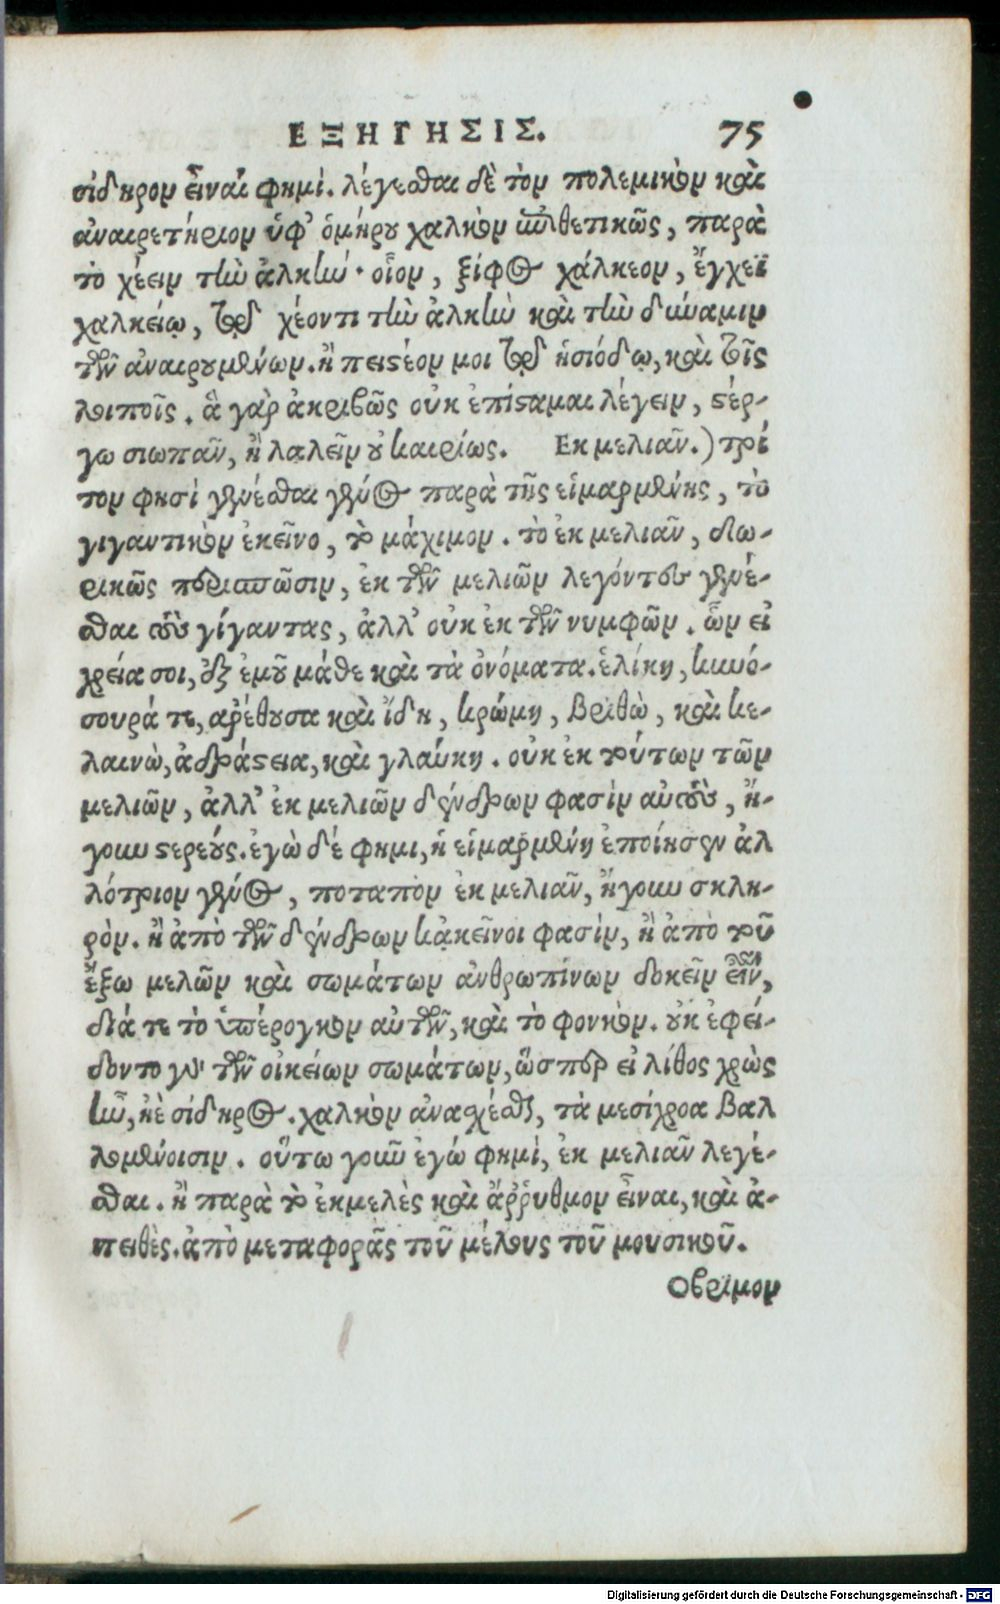 ΕΞΗΓΗΣΙΣ. 75
σίδηρον εἶναί φημι. λέγεσθαι δὲ τὸν πολεμικὸν καὶ
ἀναιρετήριον ὑφ' ὁμήρου χαλκὸν ἐπιθετικῶς, παρὰ
τὸ χέειν τὴν ἀλκήν· οἷον, ξίφος χάλκεον, ἔγχεϊ
χαλκείῳ, τῷ χέοντι τὴν ἀλκὴν καὶ τὴν δύναμιν
τῶν ἀναιρουμένων. ἢ πειστέον μοι τῷ ἡσιόδῳ, καὶ τοῖς
λοιποῖς. ἃ γὰρ ἀκριβῶς οὐκ ἐπίσταμαι λέγειν, στέρ-
γω σιωπᾶν, ἢ λαλεῖν οὐ καιρίως. Εκ μελιᾶν.) τρί
τον φησὶ γενέσθαι γένος παρὰ τῆς εἱμαρμένης, τὸ
γιγαντικὸν ἐκεῖνο, τὸ μάχιμον. τὸ ἐκ μελιᾶν, δω-
ρικῶς περισπῶσιν, ἐκ τῶν μελιῶν λέγοντες γενέ-
σθαι τοὺς γίγαντας, ἀλλ' οὐκ ἐκ τῶν νυμφῶν. ὧν εἰ
χρεία σοι, ἐξ ἐμοῦ μάθε καὶ τὰ ὀνόματα. ἑλίκη, κυνό-
σουρά τε, ἀρέθουσα καὶ ἴδη, κρώμη, βριθὼ, καὶ κε-
λαινὼ, ἀδράστεια, καὶ γλαύκη. οὐκ ἐκ τούτων τῶν
μελιῶν, ἀλλ' ἐκ μελιῶν δένδρων φασὶν αὐτοὺς, ἤ-
γουν στερεούς. ἐγὼ δέ φημι, ἡ εἱμαρμένη ἐποίησεν ἀλ
λότριον γένος, ποταπὸν ἐκ μελιᾶν, ἤγουν σκλη-
ρὸν. ἢ ἀπὸ τῶν δένδρων κἀκεῖνοι φασὶν, ἢ ἀπὸ τοῦ
ἔξω μελῶν καὶ σωμάτων ἀνθρωπίνων δοκεῖν εἶναι,
διά τε τὸ ὑπέρογκον αὐτῶν, καὶ τὸ φονικὸν. οὐκ ἐφεί-
δοντο γὰρ τῶν οἰκείων σωμάτων, ὥσπερ εἰ λίθος χρὼς
ἦν, ἠὲ σίδηρος. χαλκὸν ἀνασχέσθαι, τὰ μεσίχροα βαλ
λομένοισιν. οὕτω γοῦν ἐγώ φημὶ, ἐκ μελιᾶν λεγέ-
σθαι. ἢ παρὰ τὸ ἐκμελὲς καὶ ἄῤῥυθμον εἶναι, καὶ ἀ-
πειθὲς. ἀπὸ μεταφορᾶς τοῦ μέλους τοῦ μουσικοῦ.
Οβριμον
Digitalisierung gefördert durch die Deutsche Forschungsgemeinschaft - DFG